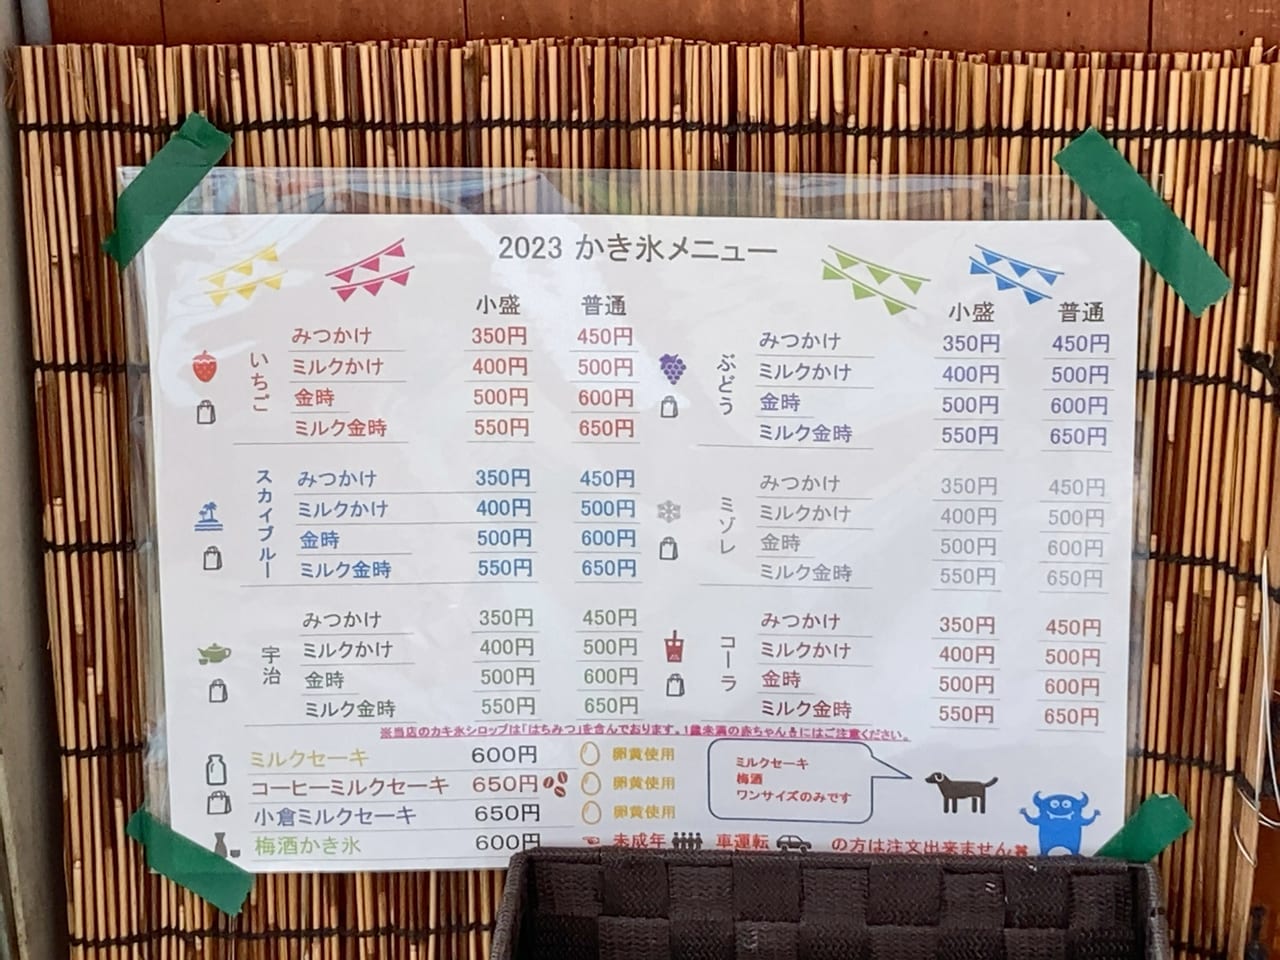 2023 かき氷メニュー
小盛 普通
いちご
みつかけ 350円 450円
ミルクかけ 400円 500円
金時 500円 600円
ミルク金時 550円 650円
スカイブルー
みつかけ 350円 450円
ミルクかけ 400円 500円
金時 500円 600円
ミルク金時 550円 650円
宇治
みつかけ 350円 450円
ミルクかけ 400円 500円
金時 500円 600円
ミルク金時 550円 650円
小盛 普通
ぶどう
みつかけ 350円 450円
ミルクかけ 400円 500円
金時 500円 600円
ミルク金時 550円 650円
ミゾレ
みつかけ 350円 450円
ミルクかけ 400円 500円
金時 500円 600円
ミルク金時 550円 650円
コーラ
みつかけ 350円 450円
ミルクかけ 400円 500円
金時 500円 600円
ミルク金時 550円 650円
※当店のカキ氷シロップは「はちみつ」を含んでおります。1歳未満の赤ちゃんにはご注意ください。
ミルクセーキ 600円 卵黄使用
コーヒーミルクセーキ 650円 卵黄使用
小倉ミルクセーキ 650円 卵黄使用
梅酒かき氷 600円 未成年 車運転 の方は注文出来ません
ミルクセーキ
梅酒
ワンサイズのみです